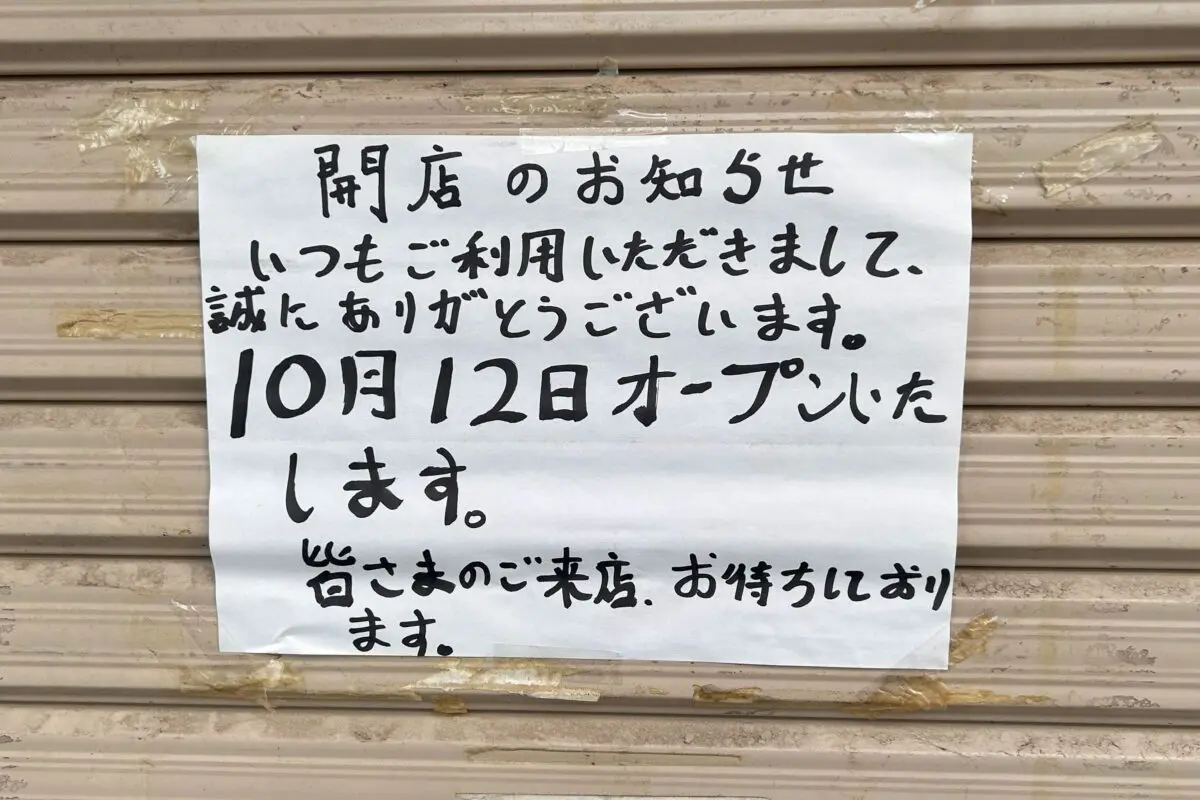 開店のお知らせ
いつもご利用いただきまして、
誠にありがとうございます。
10月12日オープンいた
します。
皆さまのご来店、お待ちしており
ます。